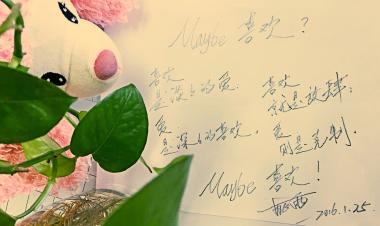 Maybe 喜欢?
喜欢
是的爱.
爱
是深々的喜欢.
喜欢
就是放肆;
爱
则是克制.
Maybe 喜欢!
2016.1.25.